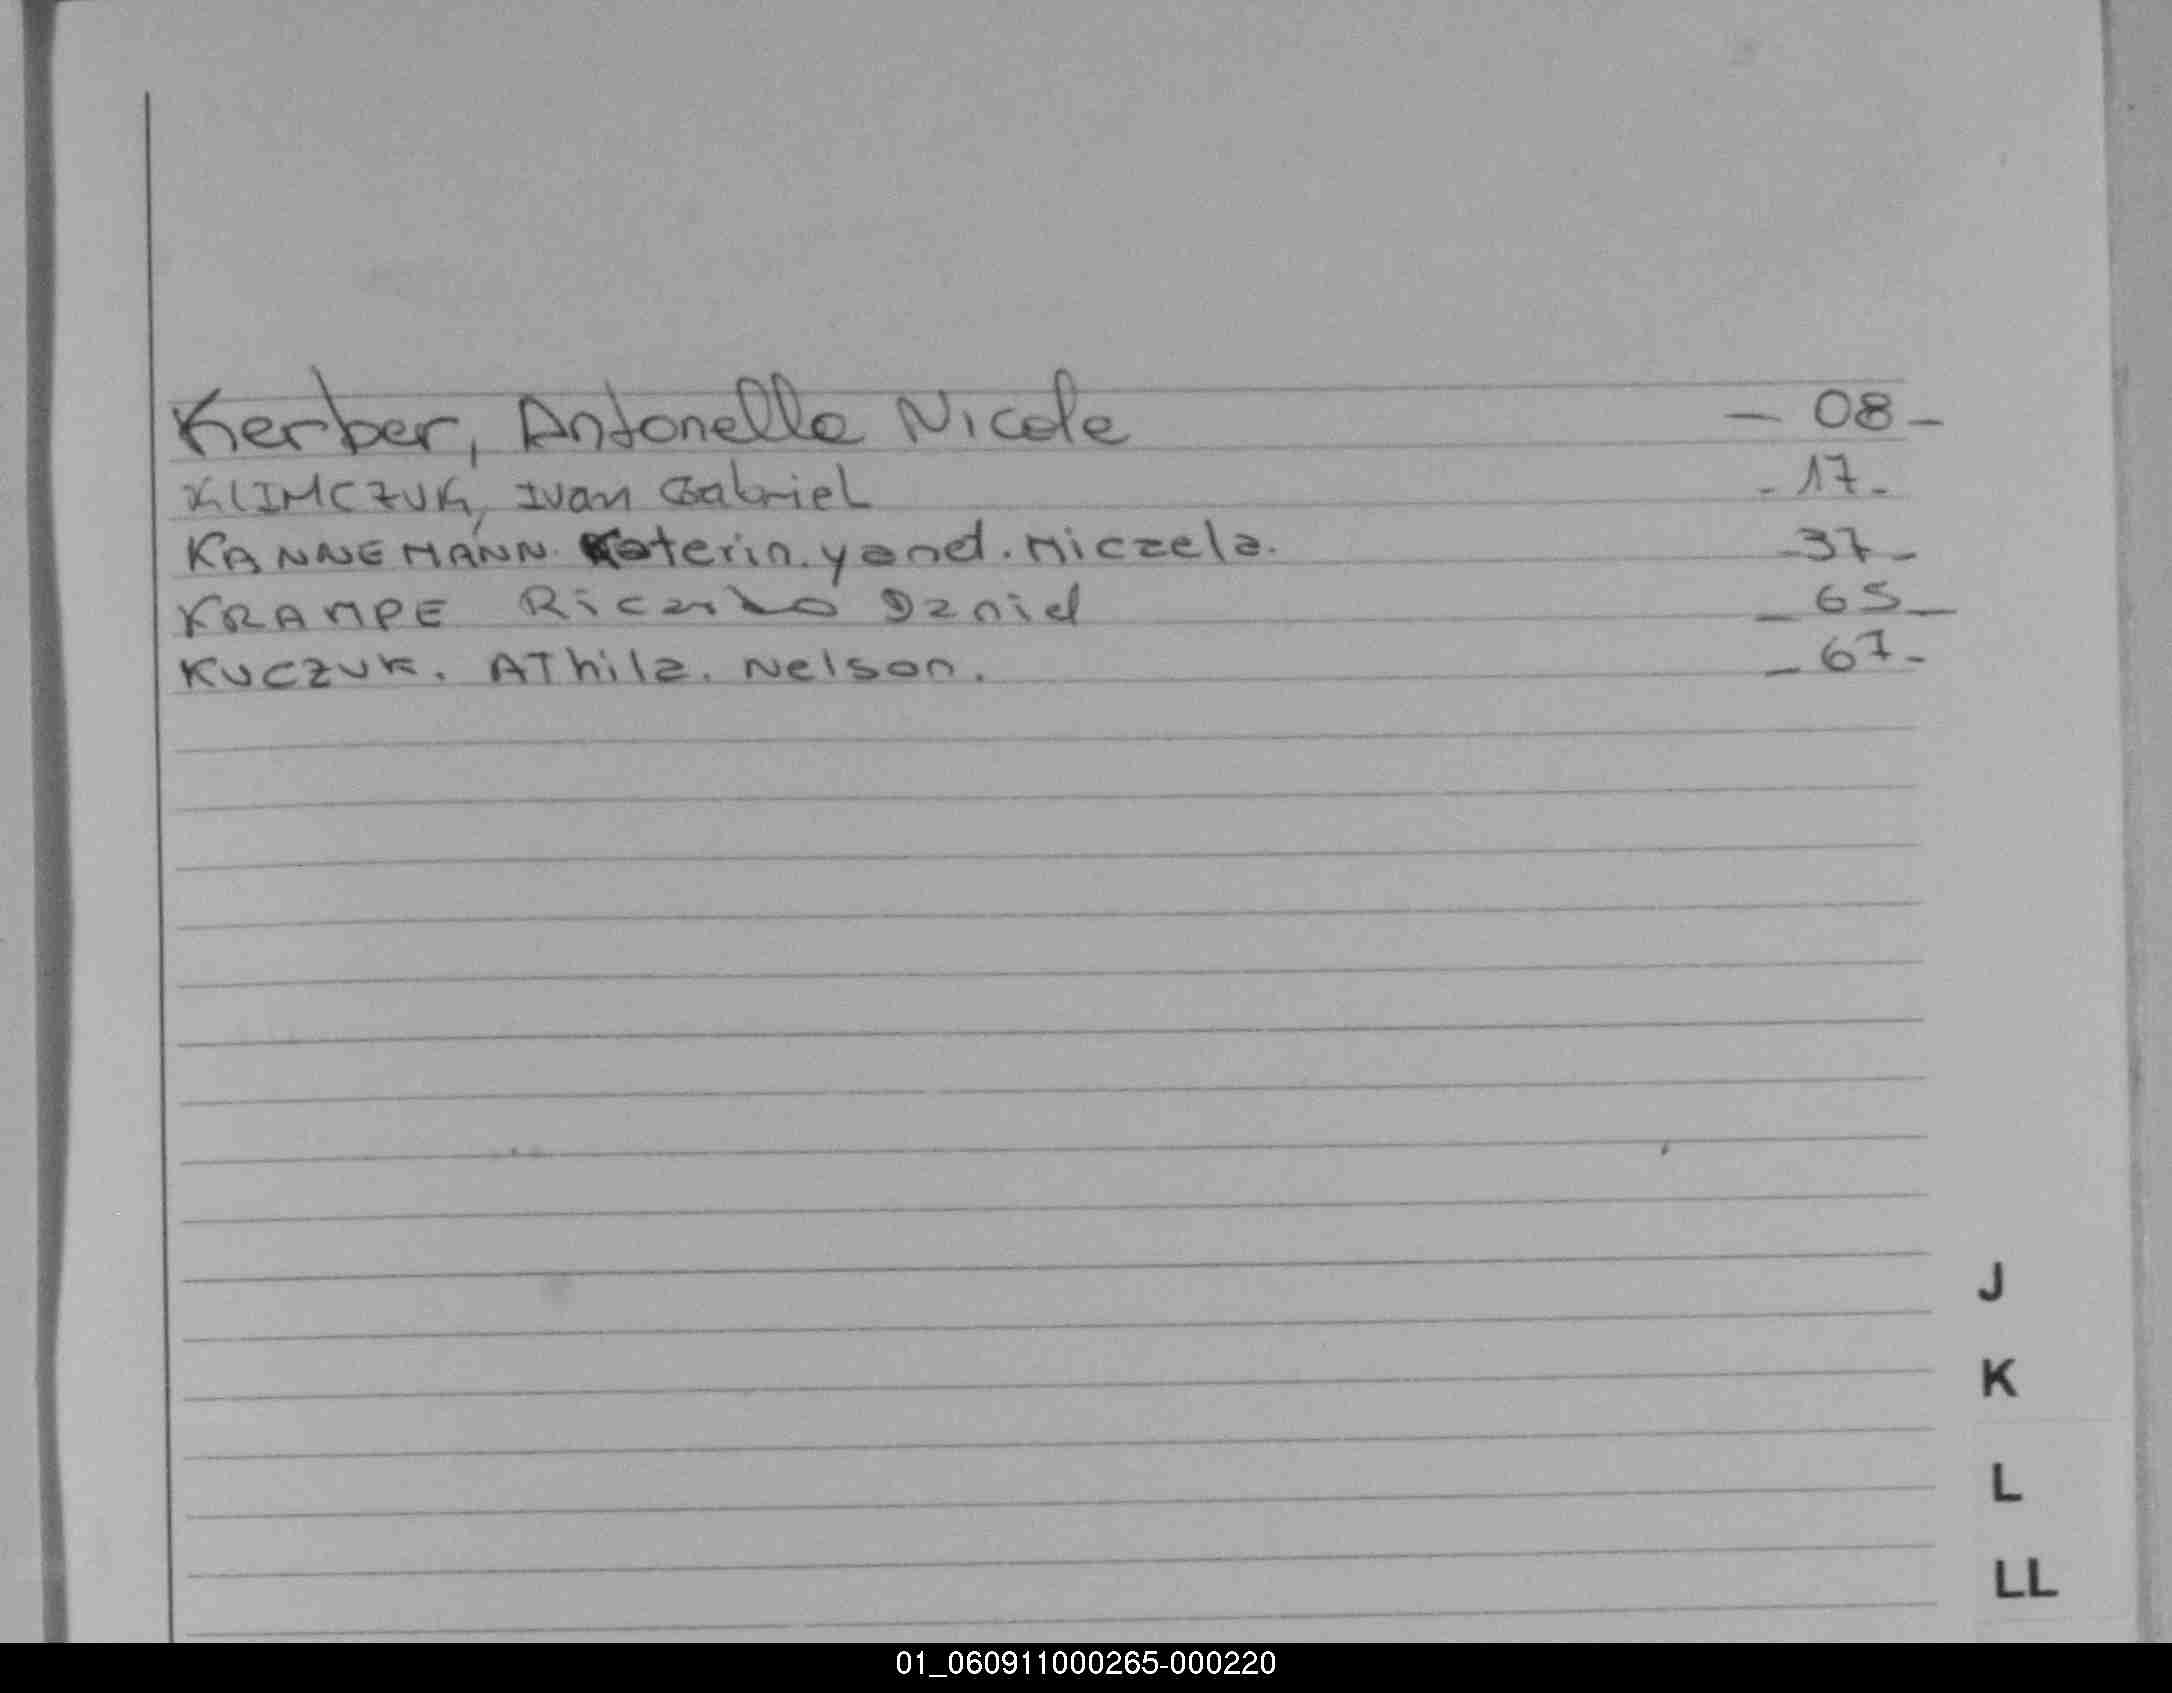 Kerber, Antonella Nicole — 08 -
KLIMCZUK, Ivan Gabriel - 17 -
KANNEMANN. Katerin. yand. Micaela. - 37 -
KRAMPE Ricardo Daniel - 65 -
KUCZUK. AThila. Nelson. - 67 -
J
K
L
LL
01_060911000265-000220